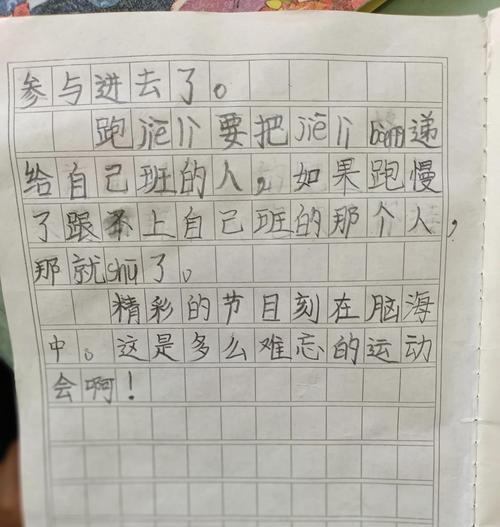 参与进去了。
跑jiē lì要把jiē lì bàng递
给自己班的人，如果跑慢
了跟不上自己班的那个人，
那就shū了。
精彩的节目刻在脑海
中。这是多么难忘的运动
会啊！